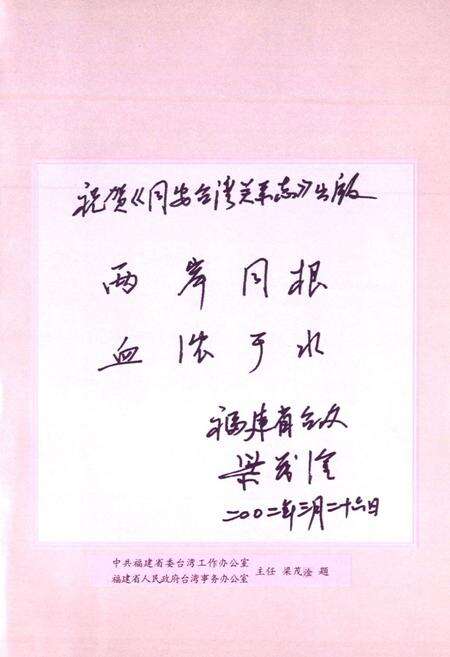 祝贺《同安台湾关系志》出版
两岸同根
血浓于水
福建省台办
梁茂淦
二00二年三月二十六日
中共福建省委台湾工作办公室
福建省人民政府台湾事务办公室
主任 梁茂淦 题